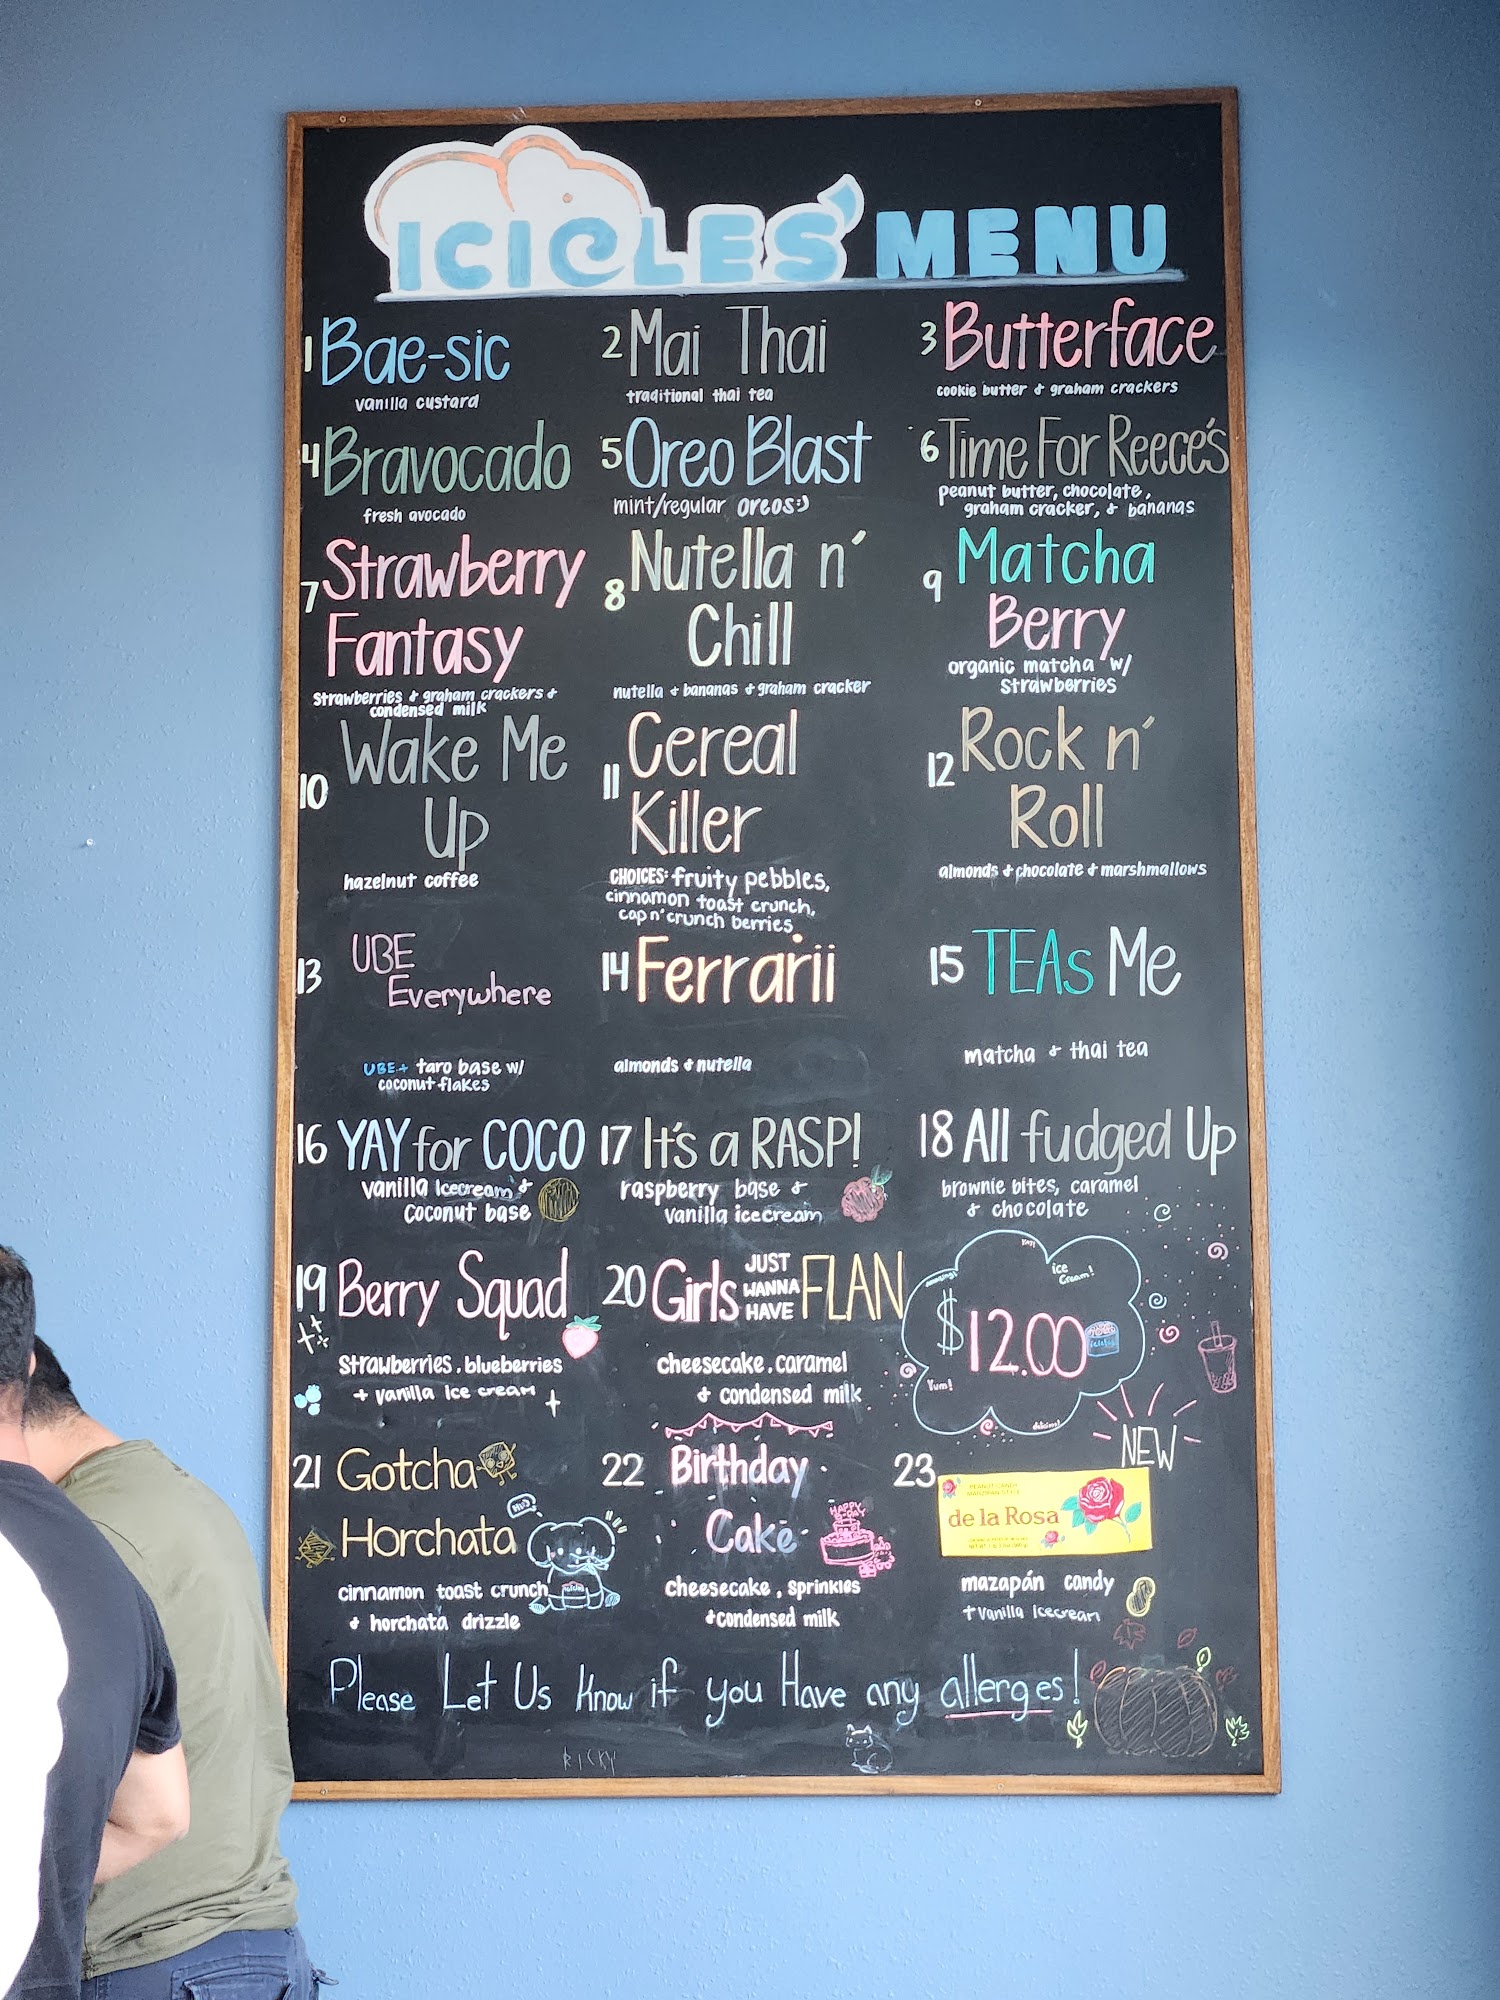 ICICLES' MENU
1 Bae-sic
vanilla custard
2 Mai Thai
traditional thai tea
3 Butterface
cookie butter & graham crackers
4 Bravocado
fresh avocado
5 Oreo Blast
mint/regular oreos:)
6 Time For Reece's
peanut butter, chocolate,
graham cracker, & bananas
7 Strawberry
Fantasy
strawberries & graham crackers &
condensed milk
8 Nutella n'
Chill
nutella & bananas & graham cracker
9 Matcha
Berry
organic matcha w/
strawberries
10 Wake Me
Up
hazelnut coffee
11 Cereal
Killer
CHOICES: fruity pebbles,
cinnamon toast crunch,
cap n' crunch berries
12 Rock n'
Roll
almonds & chocolate & marshmallows
13 UBE
Everywhere
UBE + taro base w/
coconut flakes
14 Ferrarii
almonds & nutella
15 TEAs Me
matcha & thai tea
16 YAY for COCO
vanilla Icecream &
Coconut base
17 It's a RASP!
raspberry base &
vanilla icecream
18 All fudged Up
brownie bites, caramel
& chocolate
19 Berry Squad
strawberries, blueberries
+ vanilla Ice cream
20 Girls JUST WANNA HAVE FLAN
cheesecake, caramel
& condensed milk
Yay!
amazing!
ice
Cream!
$12.00
Yum!
delicious!
21 Gotcha
Horchata
cinnamon toast crunch
& horchata drizzle
22 Birthday
Cake
HAPPY
B-DAY
cheesecake, sprinkles
& condensed milk
NEW
23
de la Rosa
mazapán candy
+ vanilla Icecream
Please Let Us Know if you Have any allerges!
RICKY